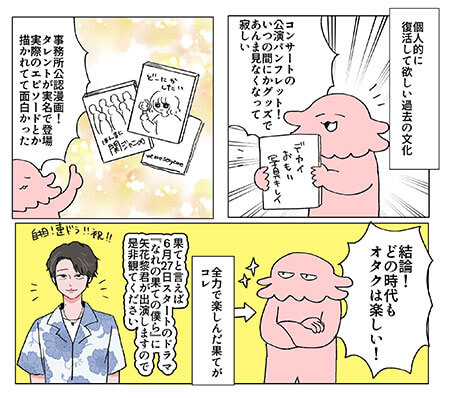 個人的に
復活して欲しい過去の文化
コンサートの
公演パンフレット！
いつの間にかグッズで
あんま見なくなって
寂しい
デカイ
おもい
写真キレイ
事務所公認漫画！
タレントが実名で登場
実際のエピソードとか
描かれてて面白かった
どーにか
したい
ほんまに
関ジャニ∞
結論！
どの時代も
オタクは楽しい！
全力で楽しんだ果てが
コレ
果てと言えば
6月27日スタートのドラマ
「それの果ての僕ら」に
矢花黎君が出演しますので
是非観てください
自担！連ドラ！！祝！！